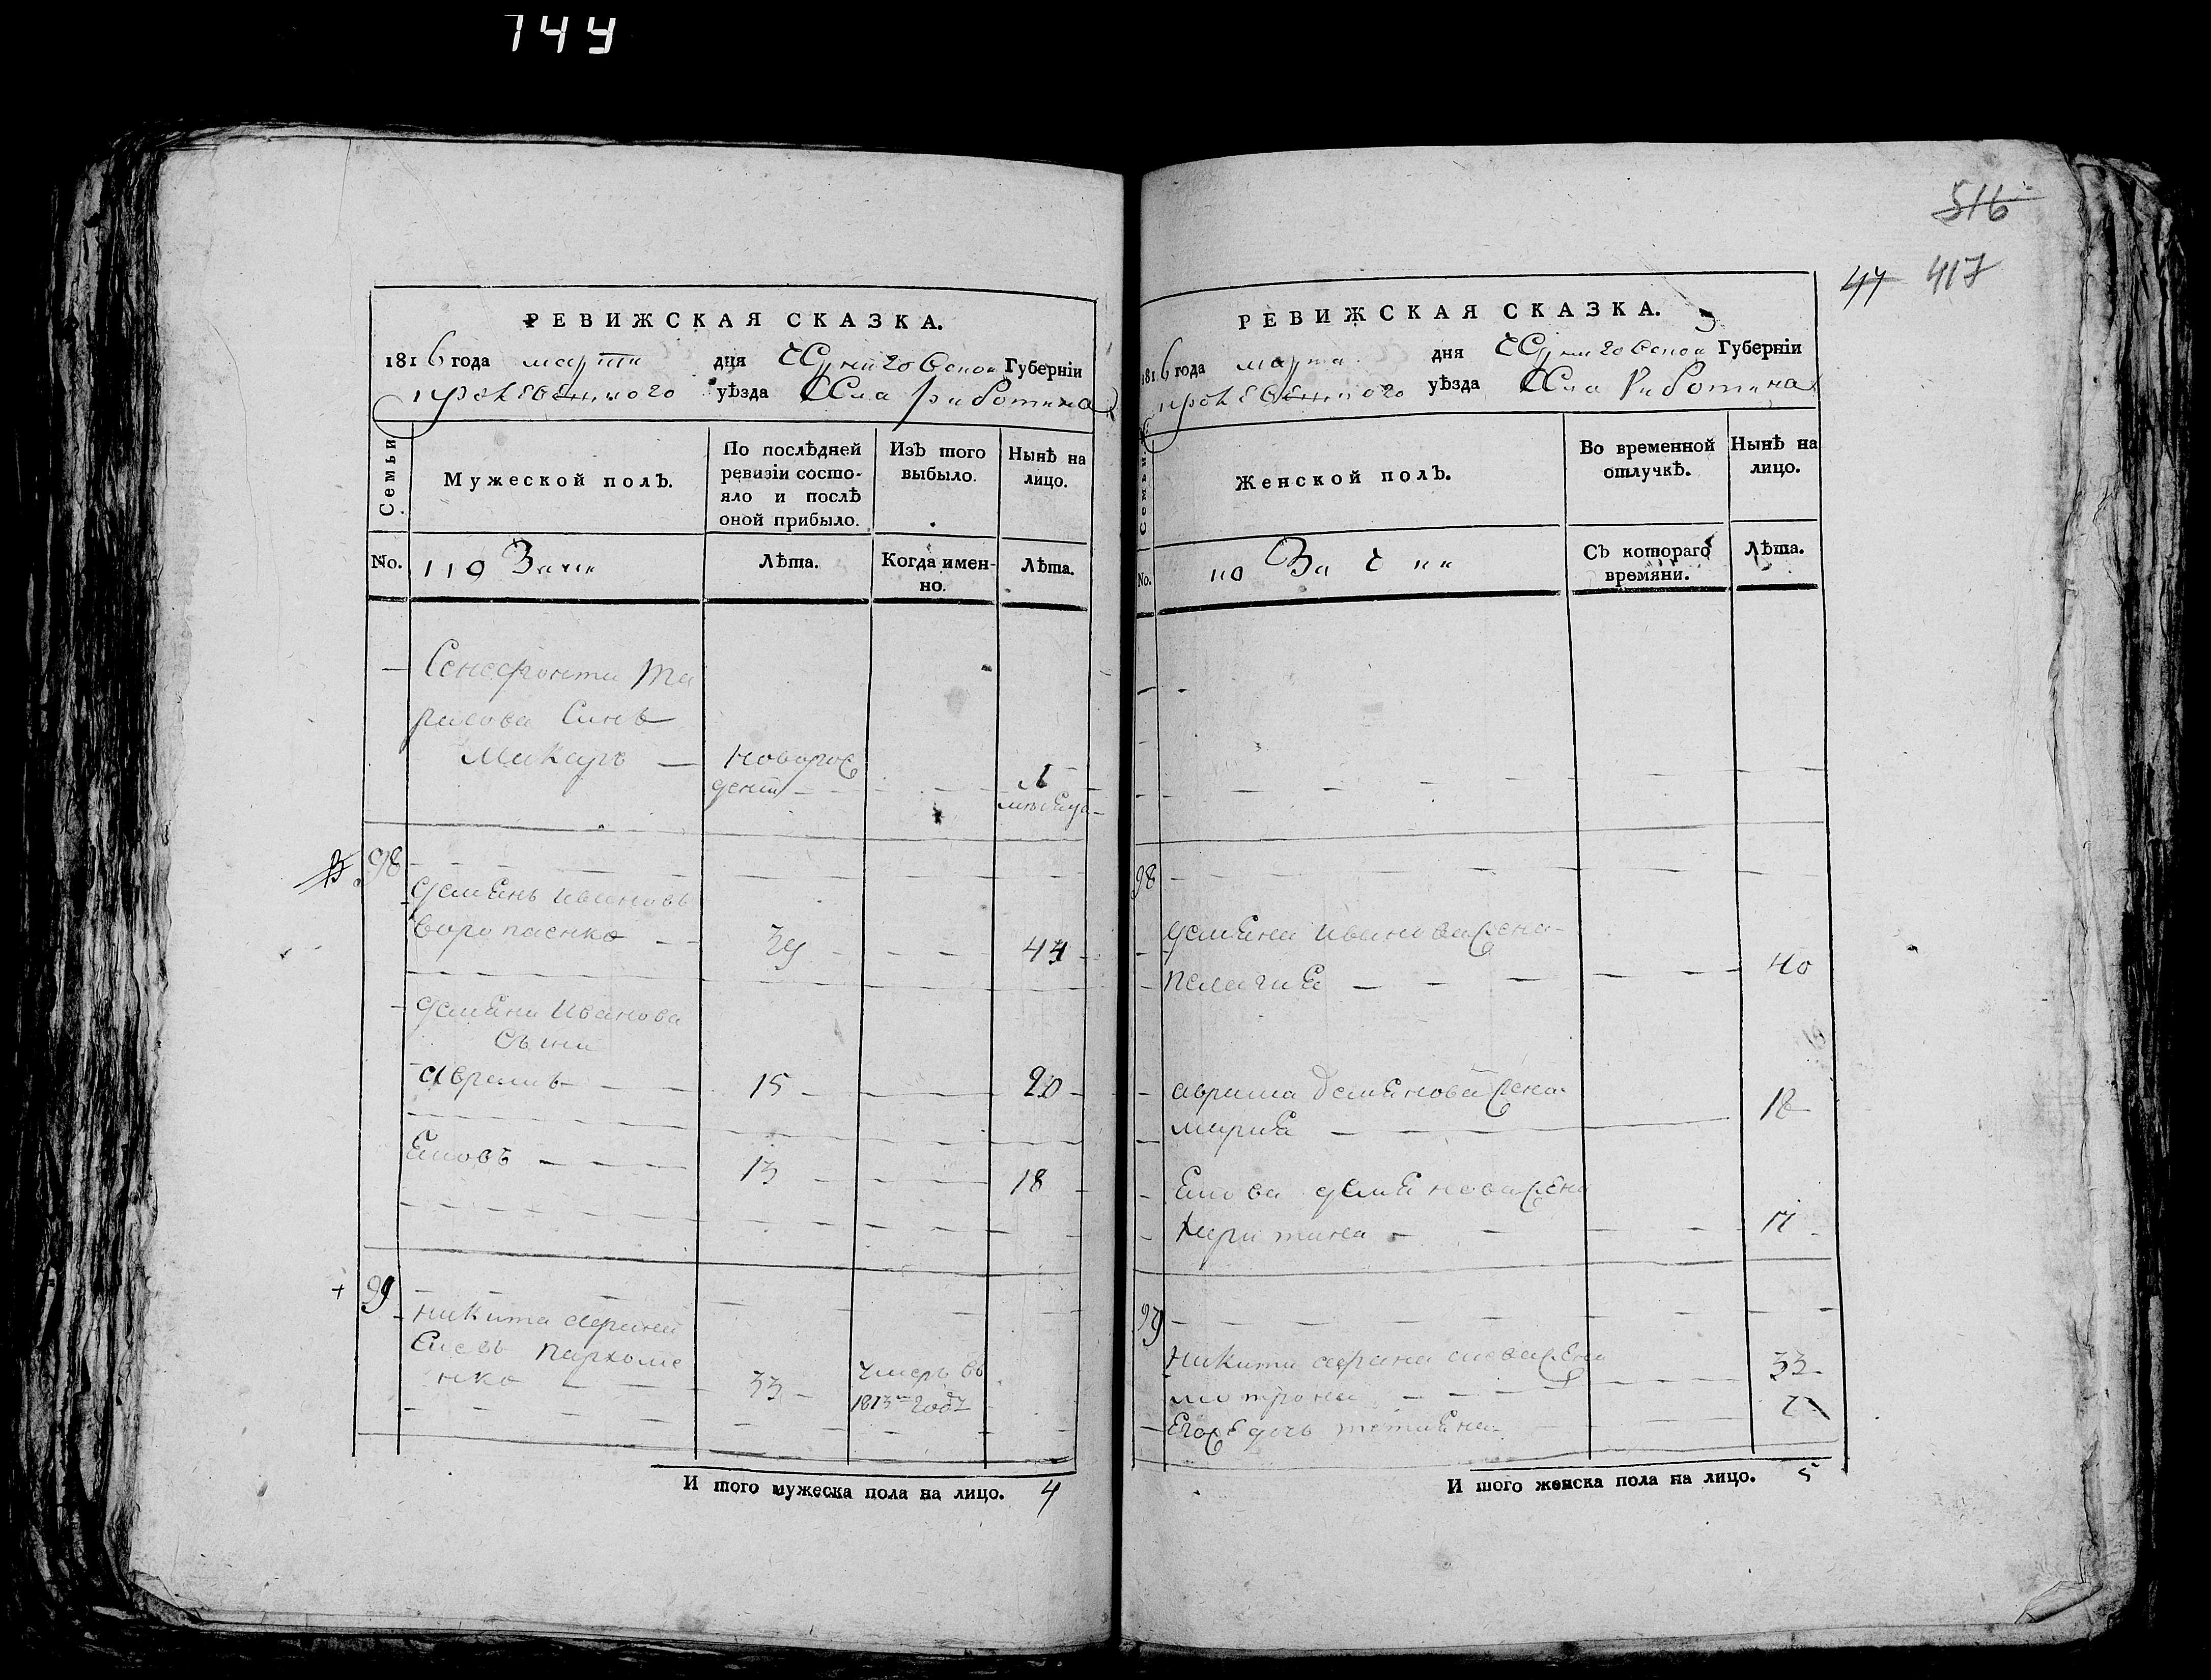 744
516
47 417
РЕВИЖСКАЯ СКАЗКА.
1816 года марта дня Черниговской Губерніи
Кролевецкого уѣзда Села
Семьи
Мужеской полъ.
По послѣдней
ревизіи состо-
яло и послѣ
оной прибыло.
Изъ того
выбыло.
Нынѣ на
лицо.
No.
Лѣта.
Когда имен-
но.
Лѣта.
Ксенофонта Та
расова Синъ
Макаръ — новорож
дений 1
98
Демянъ Ивановъ
39 44
Демяна Иванова
Сыни
Аврамъ 15 20
13 18
99
Никита
Пархоме
нко 33 умеръ въ
1813 году
И того мужеска пола на лицо. 4
РЕВИЖСКАЯ СКАЗКА.
1816 года марта дня Черниговской Губерніи
Кролевецкого уѣзда Села
Семьи.
Женской полъ.
Во временной
отлучкѣ.
Нынѣ на
лицо.
No.
Съ котораго
времяни.
Лѣта.
98
Демяна Иванова жена
Пелагия 40
Аврама Демянова жена
Мария 18
Демянова жена
Харитина 17
99
Никити жена
Мотрона 33
Его же дочь Татияна
И того женска пола на лицо. 5